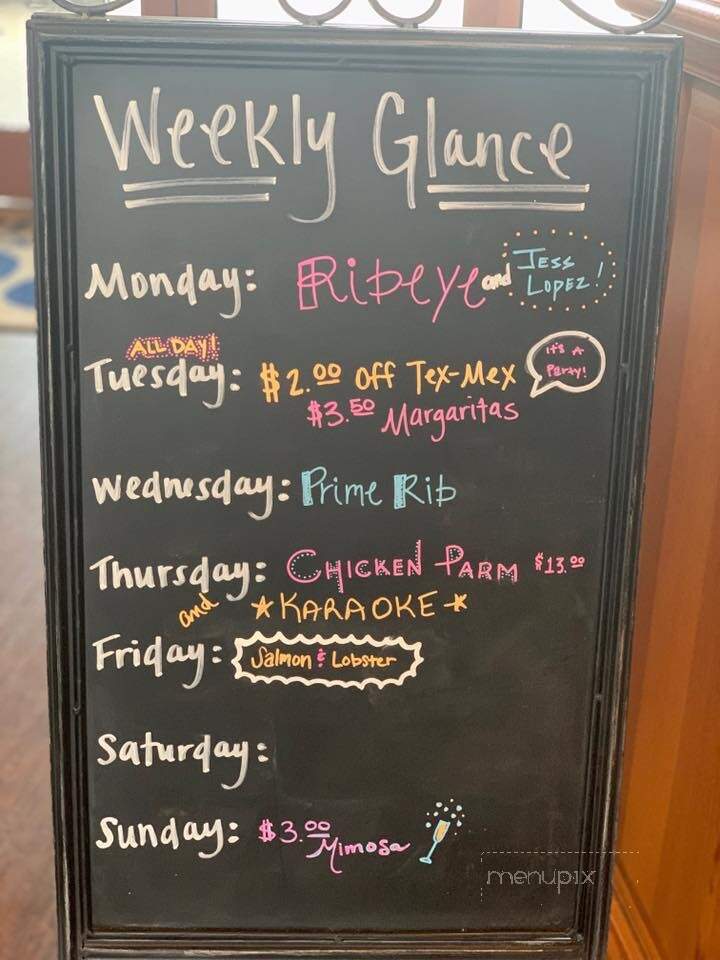 Weekly Glance
Monday: Ribeye and Jess Lopez!
ALL DAY!
Tuesday: $2.00 off Tex-Mex It's A Party!
$3.50 Margaritas
Wednesday: Prime Rib
Thursday: Chicken Parm $13.00
and ★KARAOKE★
Friday: Salmon & Lobster
Saturday:
Sunday: $3.00 Mimosa
menupix